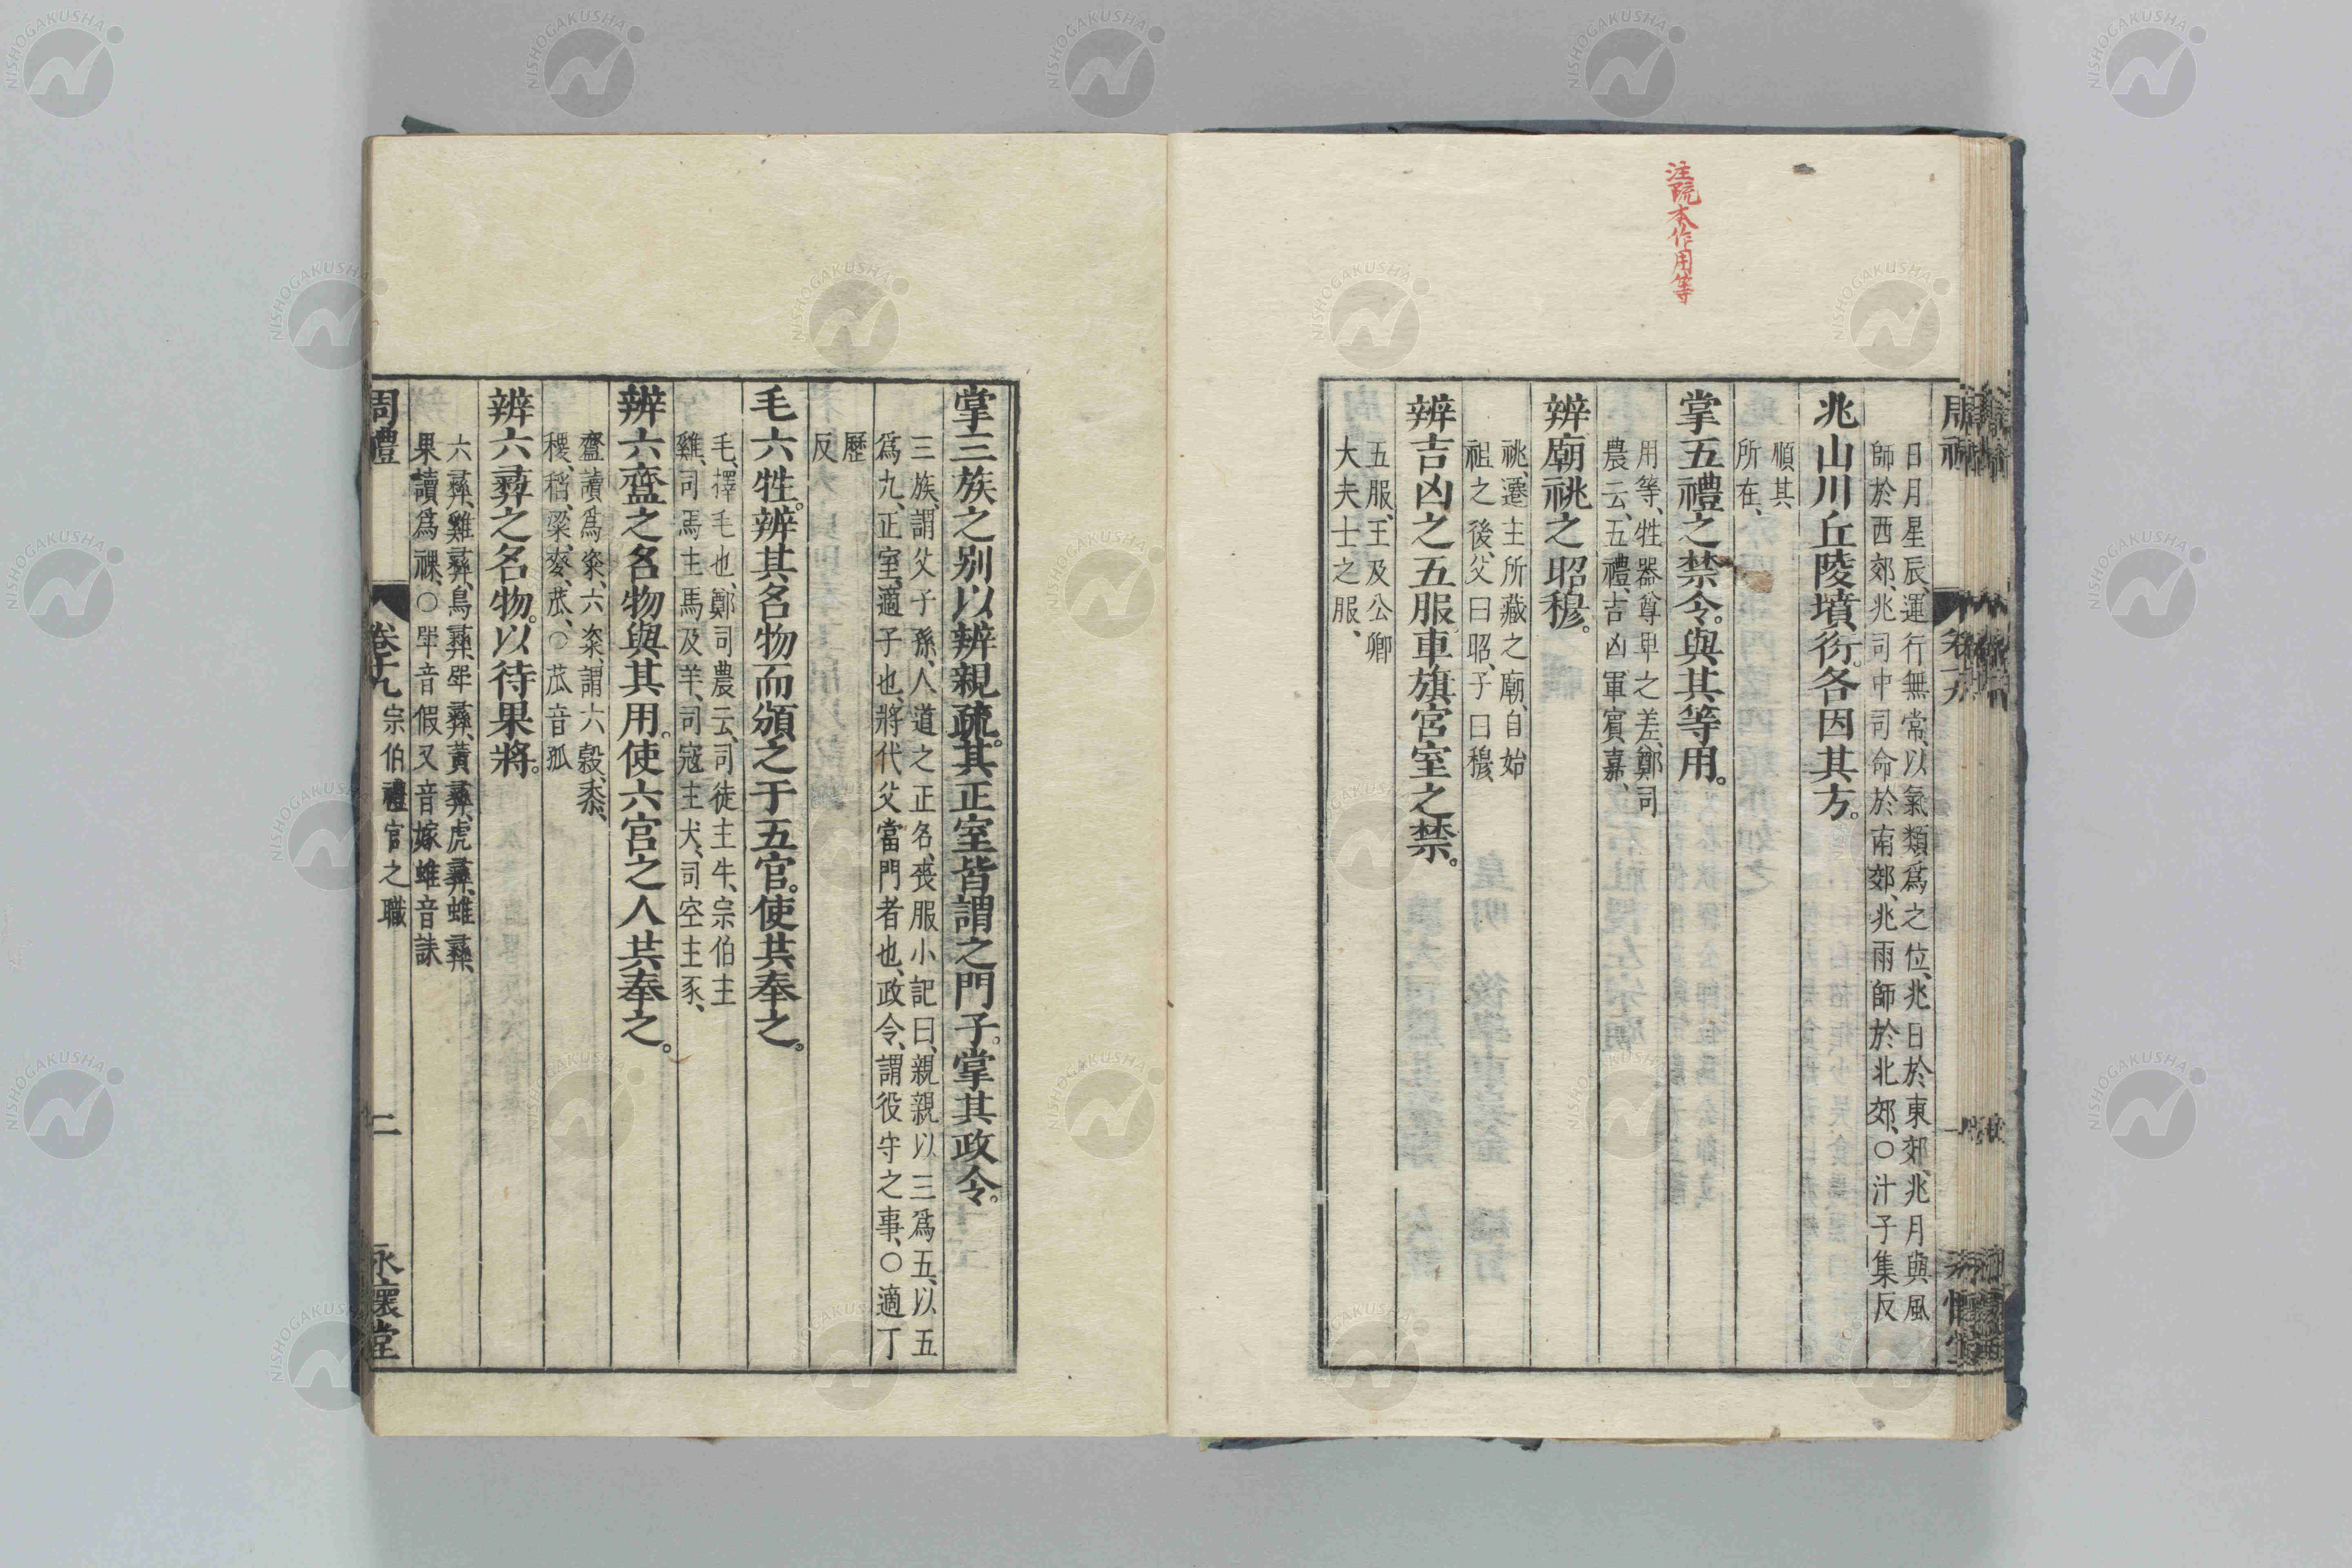 注疏本作用等
日月星辰、運行無常、以氣類爲之位、兆日於東郊、兆月與風
師於西郊、兆司中司命於南郊、兆雨師於北郊、○汁子集反
兆山川丘陵墳衍。各因其方。
順其
所在、
掌五禮之禁令。與其等用。
用等、牲器尊卑之差、鄭司
農云、五禮、吉凶軍賓嘉、
辨廟祧之昭穆。
祧、遷主所藏之廟、自始
祖之後、父曰昭、子曰穆、
辨吉凶之五服車旗宮室之禁。
五服、王及公卿
大夫士之服、
掌三族之别以辨親疏。其正室皆謂之門子。掌其政令。
三族、謂父子孫、人道之正名、喪服小記曰、親親以三爲五、以五
爲九、正室、適子也、將代父當門者也、政令、謂役守之事、○適丁
歷
反
毛六牲。辨其名物而頒之于五官。使共奉之。
毛、擇毛也、鄭司農云、司徒主牛、宗伯主
雞、司馬主馬及羊、司寇主犬、司空主豕、
辨六齍之名物與其用。使六宫之人共奉之。
齍讀爲粢、六粢、謂六穀、黍、
稷、稻、粱、麥、苽、○苽音孤
辨六彝之名物。以待果將。
六彝、雞彝、鳥彝、斝彝、黃彝、虎彝、蜼彝、
果讀爲祼、○斝音假又音嫁蜼音誄
周禮 卷十九 宗伯禮官之職 二 永懷堂
NISHOGAKUSHA